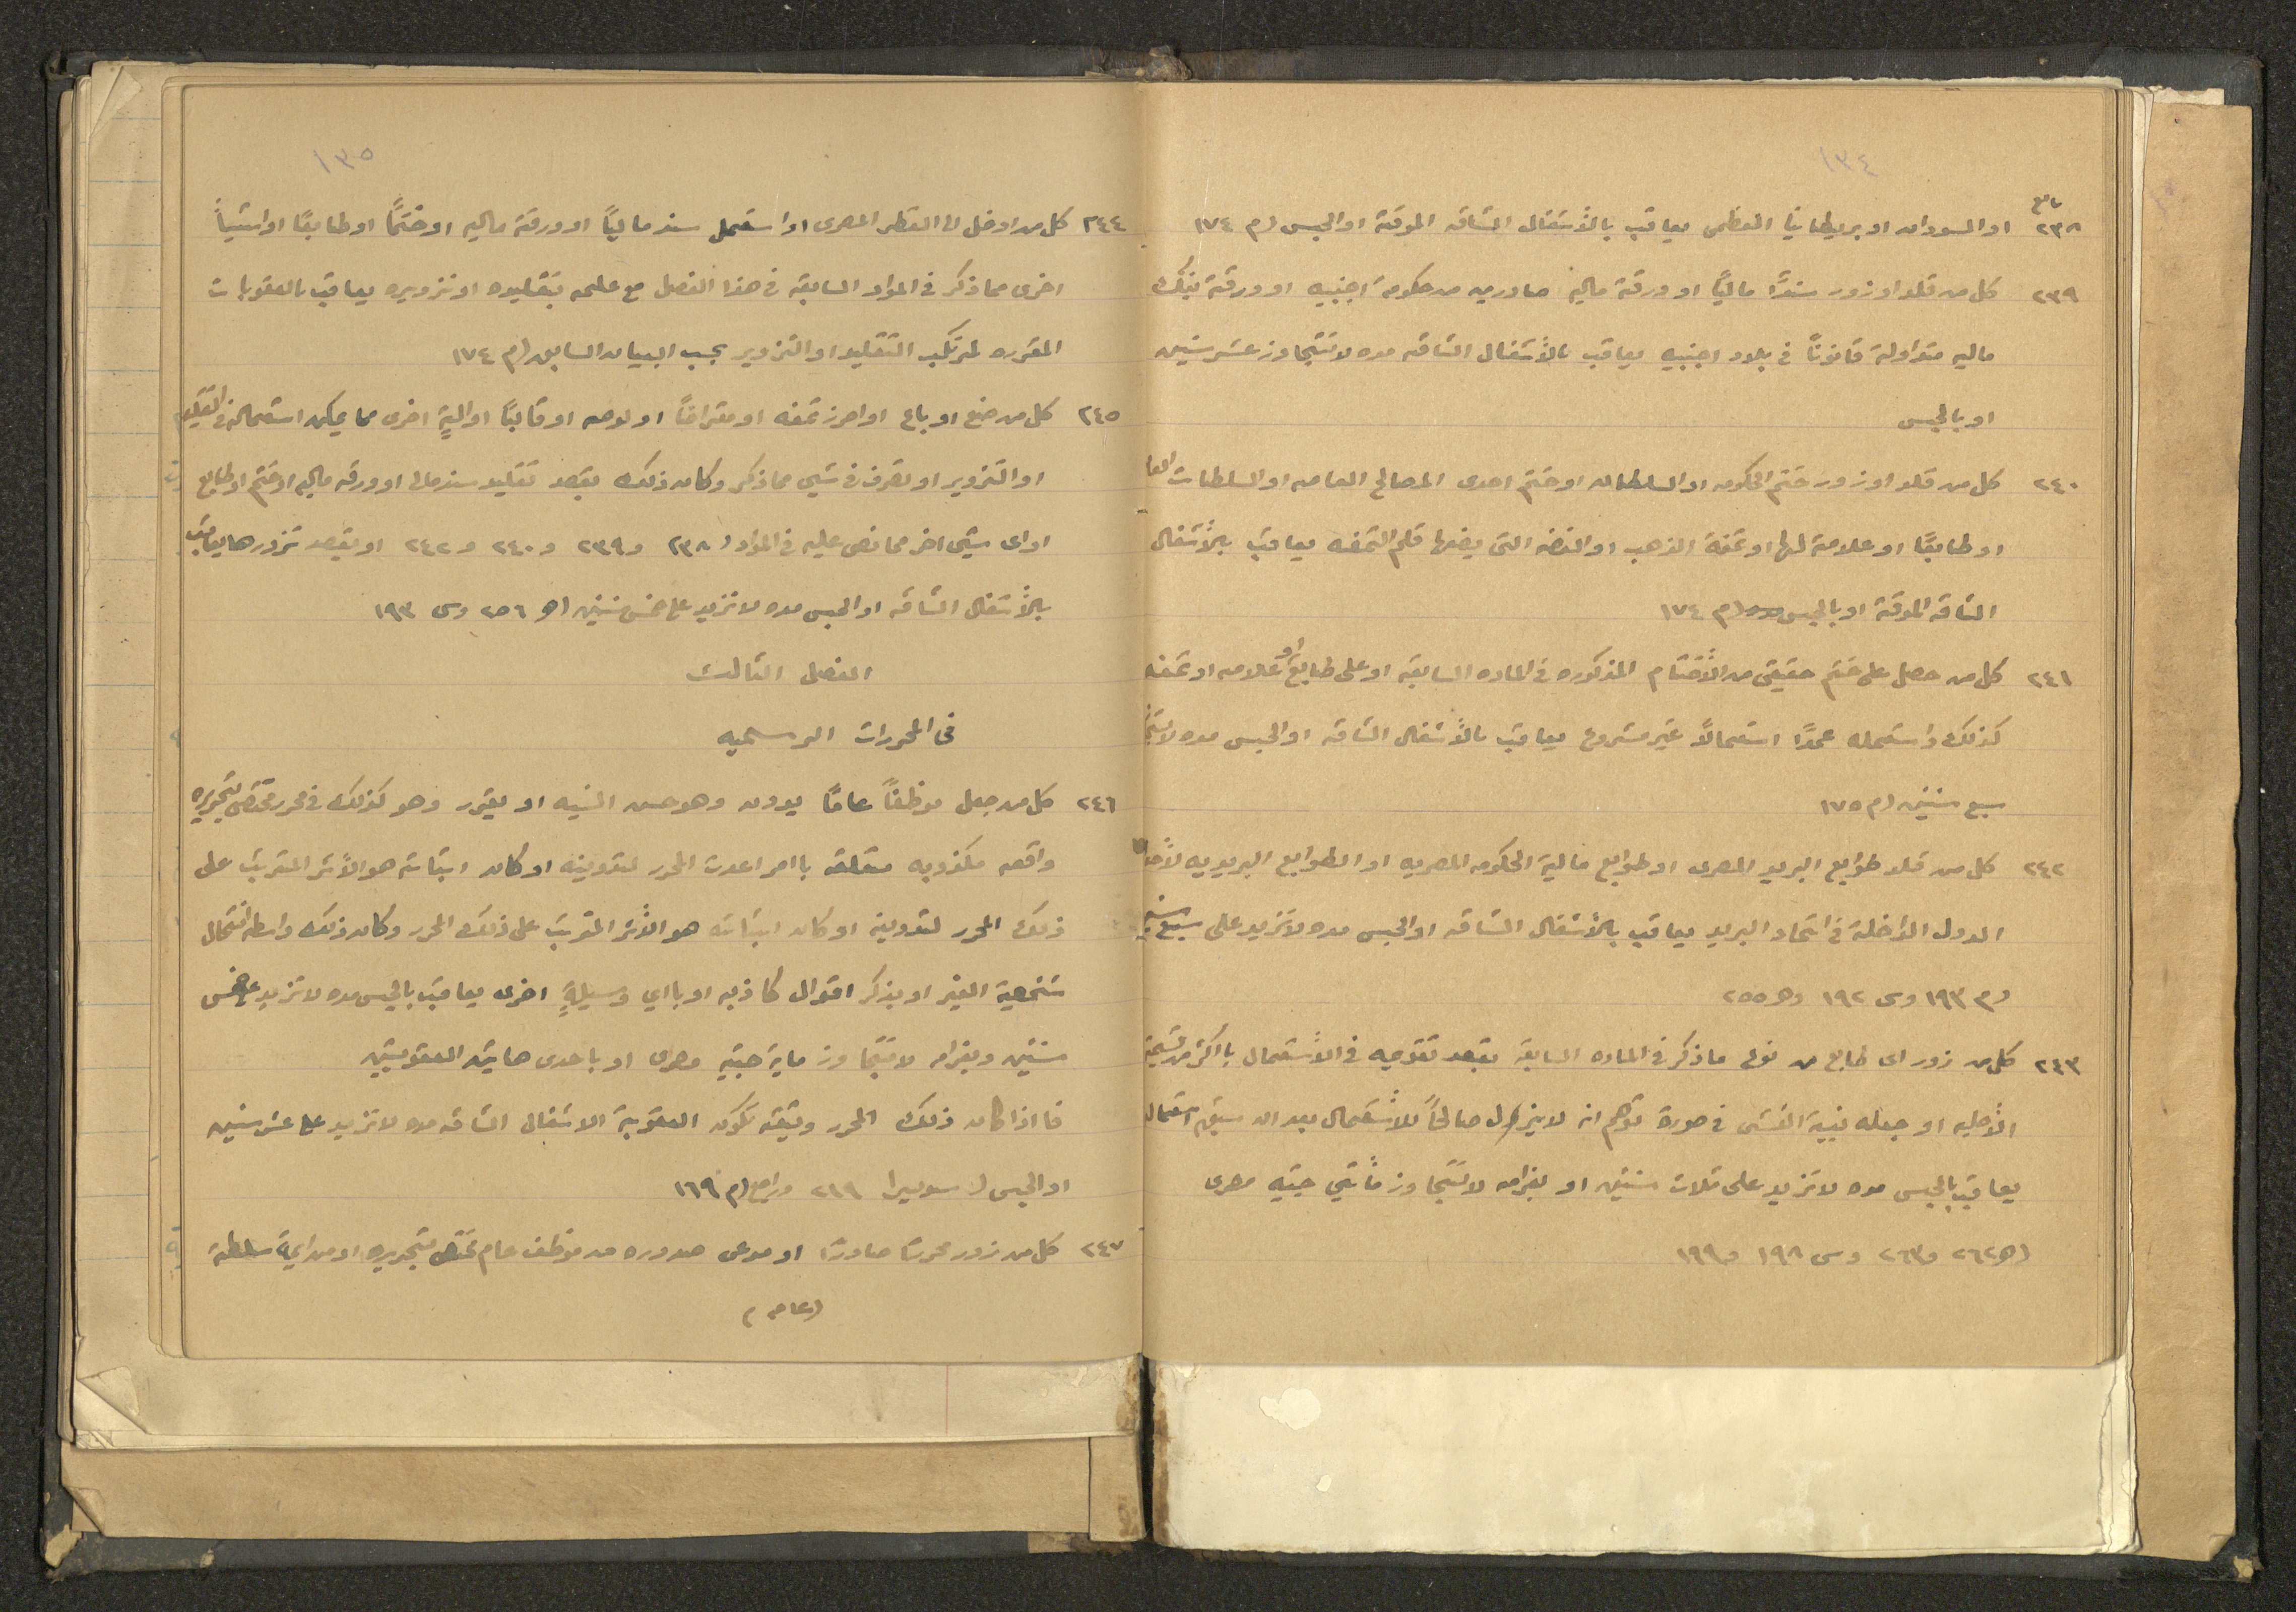 ١٣٤
تابع
٢٣٨ او السودان او بريطانيا العظمى يعاقب بالأشغال الشاقه الموقتة او الحبس (م ١٧٤
٢٣٩ كل من قلد او زور سندًا ماليًا او ورقة ماليه صادرين من حكومة اجنبيه او ورقة بنك
ماليه متداولة قانونًا في بلاد اجنبيه يعاقب بالأشغال الشاقه مده لا تتجاوز عشر سنين
او بالحبس
٢٤٠ كل من قلد او زور ختم الحكومه او السلطان او ختم احدى المصالح العامه او السلطات العا
او طابعًا او علامة لها او تمغة الذهب او الفضه التى يضعها قلم التمغه يعاقب بالأشغال
الشاقه الموقتة او بالحبس (م ١٧٤
٢٤١ كل من حصل على ختم حقيقى من الأختام المذكوره في الماده السابقه او على طابع او علامه او تمغه
كذلك واستعمله عمدًا استعمالًا غير مشروع يعاقب بالأشغال الشاقه او الحبس مده لا تتجا
سبع سنين (م ١٧٥
٢٤٢ كل من قلد طوابع البريد المصرى او طوابع مالية الحكومه المصريه او الطوابع البريديه لأحدى
الدول الداخلة في اتحاد البريد يعاقب بالأشغال الشاقه او الحبس مده لا تزيد على سبع سنين
(م ١٩٣ وى ١٩٢ وهـ ٢٥٥
٢٤٣ كل من زور اى طابع من نوع ما ذكر في الماده السابقه بقصد تقديمه في الأستعمال بااكثر من قيمته
الأصليه او جعله بنية الغش في صورة توهم انه لا يزال صالحًا للأستعمال بعد ان سبق استعماله
يعاقب بالحبس مده لا تزيد على ثلاث سنين او بغرامه لا تتجاوز مأتي جنيه مصرى
(هـ ٢٦٢ و٢٦٣ وس ١٩٨ و١٩٩
١٣٥
٢٤٤ كل من ادخل الى القطر المصرى او استعمل سند ماليًا او ورقة ماليه او ختمًا او طابعًا او اشياً
اخرى مما ذكر في المواد السابقه في هذا الفصل مع علمه بتقليده او تزويره يعاقب بالعقوبات
المقرره لمرتكب التقليد او التزوير بحسب البيان السابق (م ١٧٤
٢٤٥ كل من صنع او باع او احرز تمغه او مقراضًا او لوحه او قالبًا او اليةٍ اخرى مما يمكن استعماله في التقليد
او التزوير او تصرف في شيى مما ذكر وكان ذلك بقصد تقليد سند مالى او ورقه ماليه او ختم او طابع
او اى شيئ اخر مما نص عليه في المواد (٢٣٨ و ٢٣٩ و ٢٤٠ و ٢٤٢ او بقصد تزورها يعاقب
بالأشغال الشاقه او الحبس مده لا تزيد على خمس سنين (هـ ٢٥٦ وى ١٩٣
الفصل الثالث
فى المحررات الرسميه
٢٤٦ كل من جعل موظفًا عامًا يدون وهو حسن النيه او يقرر وهو كذلك في محرر مختص بتحريره
واقعه مكذوبه متعلقه باامر اعدت المحرر لتدوينه او كان اثباته هو الأثر المترتب على
ذلك المحرر لتدوينه او كان اثباته هو الأثر المترتب على ذلك المحرر وكان ذلك واسطه انتحال
شخصية الغير او بذكر اقوال كاذبه او بااي وسيلةٍ اخرى يعاقب بالحبس مده لا تزيد على خمس
سنين وبغرامه لا تتجاوز ماية جنيه مصرى او باحدى هاتين العقوبتين
فااذا كان ذلك المحرر وثيقه تكون العقوبة الاشغال الشاقه مده لا تزيد على عشر سنين
او الحبس (سويسرا ٢٦٩ وراجع (م ١٦٩
٢٤٧ كل من زور محررًا صادرًا او مدعى صدوره من موظف عام مختص بتحريره او من اية سلطة
(عامه)